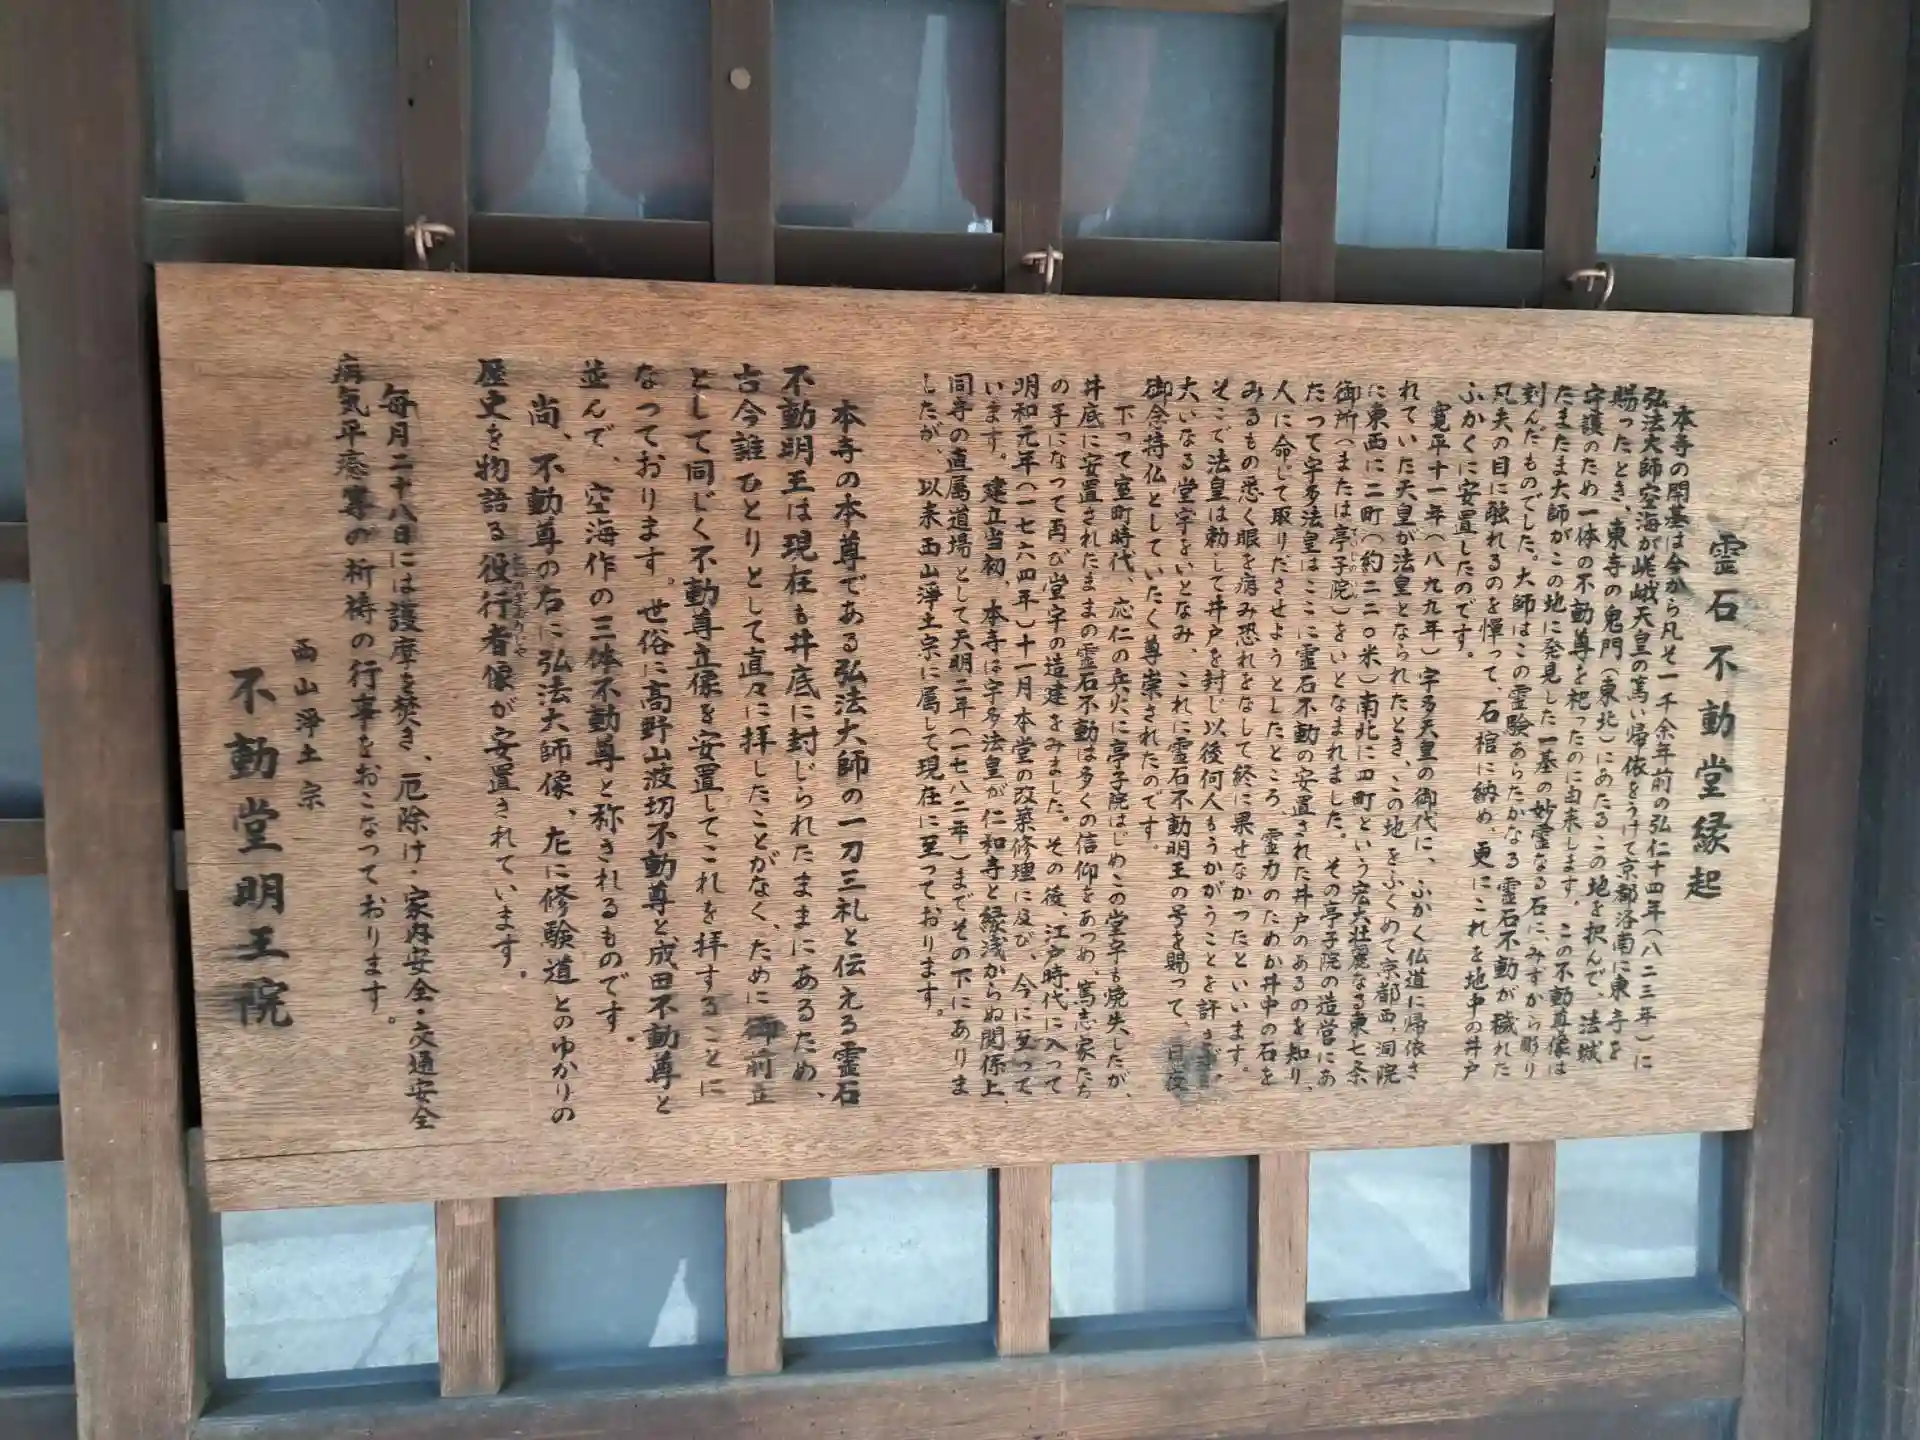 霊石不動堂縁起
本寺の開基は今から凡そ一千余年前の弘仁十四年(八二三年)に
弘法大師空海が嵯峨天皇の篤い帰依をうけて京都洛南に東寺を
賜ったとき、東寺の鬼門(東北)にあたるこの地を択んで、法城
守護のため一体の不動尊を祀ったのに由来します。この不動尊像は
たまたま大師がこの地に発見した一基の妙霊なる石に、みずから彫り
刻んだものでした。大師はこの霊験あらたかなる霊石不動が穢れた
凡夫の目に触れるのを憚って、石棺に納め、更にこれを地中の井戸
ふかくに安置したのです。
寛平十一年(八九九年)宇多天皇の御代に、ふかく仏道に帰依さ
れていた天皇が法皇となられたとき、この地をふくめて京都西洞院
に東西に二町(約二二〇米)南北に四町という宏大壮麗なる東七条
御所(または亭子院)をいとなまれました。その亭子院の造営にあ
たって宇多法皇はここに霊石不動の安置された井戸のあるのを知り、
人に命じて取りださせようとしたところ、霊力のためか井中の石を
みるもの悉く眼を病み恐れをなして終に果せなかったといいます。
そこで法皇は勅して井戸を封じ以後何人もうかがうことを許さず、
大いなる堂宇をいとなみ、これに霊石不動明王の号を賜って、日夜
御念持仏としていたく尊崇されたのです。
下って室町時代、応仁の兵火に亭子院はじめこの堂宇も焼失したが、
井底に安置されたままの霊石不動は多くの信仰をあつめ、篤志家たち
の手になって再び堂宇の造建をみました。その後、江戸時代に入って
明和元年(一七六四年)十一月本堂の改築修理に及び、今に至って
います。建立当初、本寺は宇多法皇が仁和寺と縁浅からぬ関係上、
同寺の直属道場として天明二年(一七八二年)までその下にありま
したが、以来西山浄土宗に属して現在に至っております。
本寺の本尊である弘法大師の一刀三礼と伝える霊石
不動明王は現在も井底に封じられたままにあるため、
古今誰ひとりとして直々に拝したことがなく、ために御前立
として同じく不動尊立像を安置してこれを拝することに
なっております。世俗に高野山波切不動尊と、成田不動尊と
並んで、空海作の三体不動尊と称されるものです。
尚、不動尊の右に弘法大師像、左に修験道とのゆかりの
歴史を物語る役行者像が安置されています。
毎月二十八日には護摩を焚き、厄除け・家内安全・交通安全
病気平癒等の祈祷の行事をおこなっております。
西山浄土宗
不動堂明王院